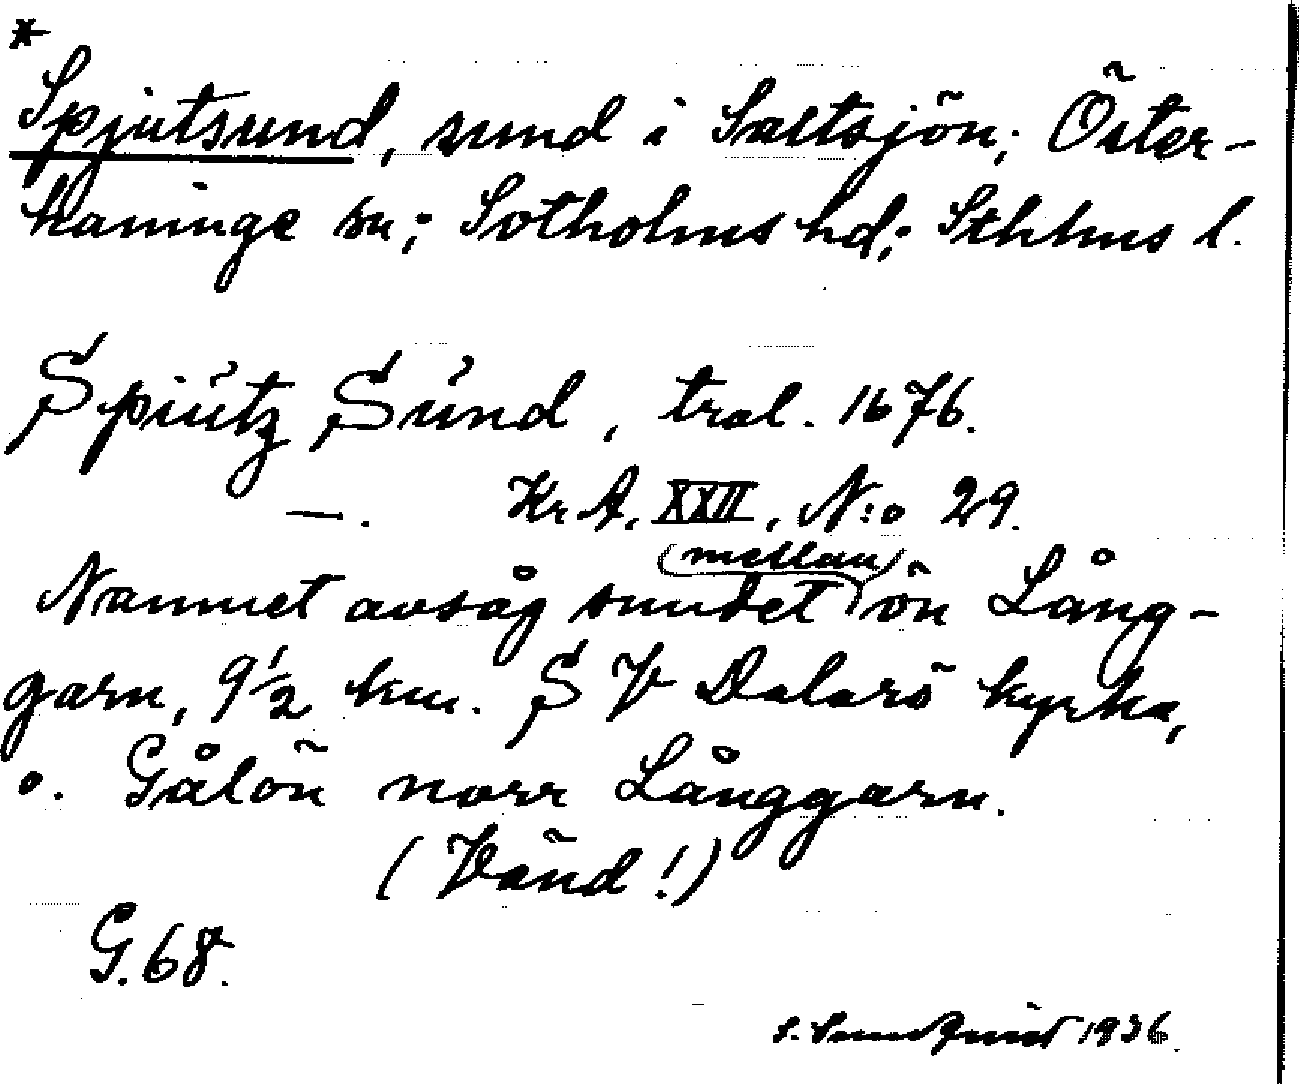 *
Spjutsund, sund i Saltsjön; Öster-
haninge sn; Sotholms hd; Sthlms l.
Spiútz Súnd, tral. 1676.
—. Kr A. XXII, N:o 29.
(mellan)
Namnet avsåg sundet ön Lång-
garn, 9½ km. S V Dalarö kyrka,
o. Gålön norr Långgarn.
(Vänd!)
G. 68.
S. Sundquist 1936.